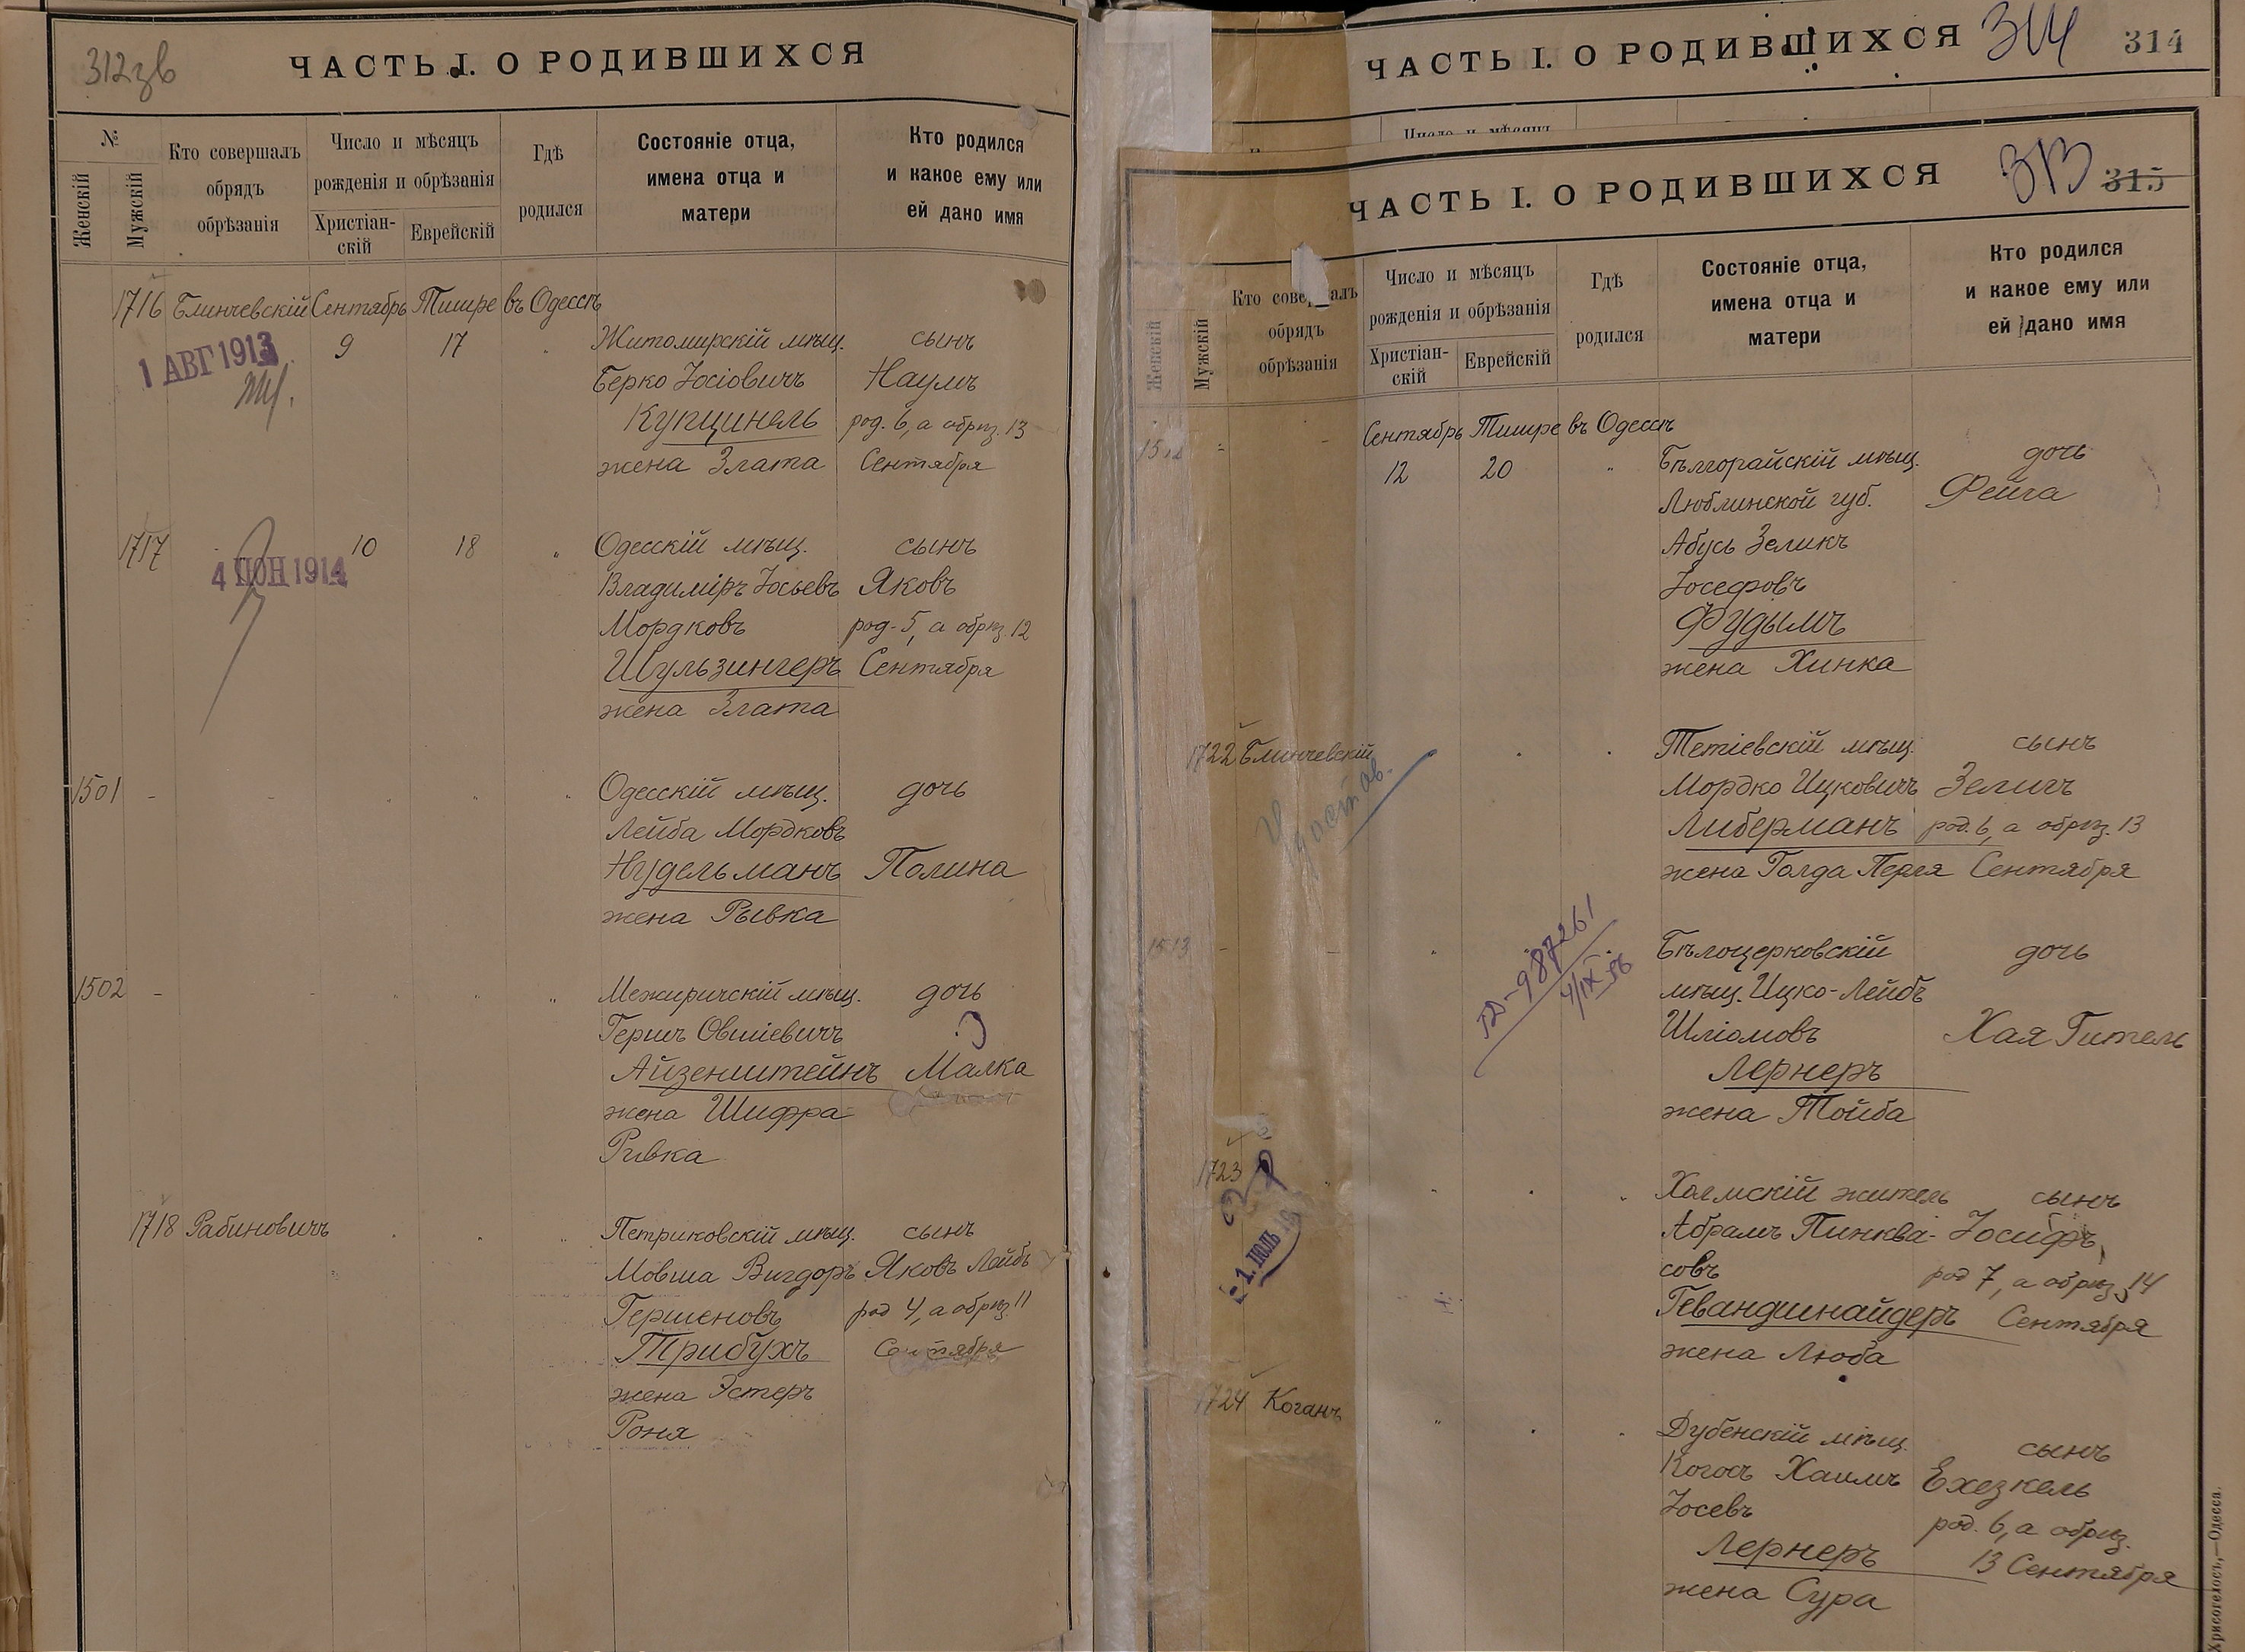 312 зв
ЧАСТЬ I. О РОДИВШИХСЯ
№
Женскій
Мужскій
Кто совершалъ
обрядъ
обрѣзанія
Число и мѣсяцъ
рожденія и обрѣзанія
Христіан-
скій
Еврейскій
Гдѣ
родился
Состояніе отца,
имена отца и
матери
Кто родился
и какое ему или
ей дано имя
1716 Блинчевскій Сентябрь Тишре въ Одессѣ
9 17 " Житомирскій мѣщ. сынъ
1 АВГ 1913
Берко Іосіовичъ Наумъ
Купцинель род. 6, а обрѣз. 13
жена Злата Сентября
1717 10 18 " Одесскій мѣщ. сынъ
4 ІЮН 1914
Владиміръ Іосьевъ Яковъ
Мордковъ род. 5, а обрѣз. 12
Шульзингеръ Сентября
жена Злата
1501 - - " " " Одесскій мѣщ. дочь
Лейба Мордковъ
Нудельманъ Полина
жена Рывка
1502 - - " " " Межиричскій мѣщ. дочь
Гершъ Овшіевичъ
Айзенштейнъ Малка
жена Шифра
Ривка
1718 Рабиновичъ " " " Петриковскій мѣщ. сынъ
Мовша Вигдоръ Яковъ Лейбъ
Гершеновъ род 4, а обрѣз. 11
Трибухъ Сентября
жена Эстеръ
Роня
ЧАСТЬ I. О РОДИВШИХСЯ 314 314
Число и мѣсяцъ
ЧАСТЬ I. О РОДИВШИХСЯ 313 315
Женскій
Мужскій
Кто совершалъ
обрядъ
обрѣзанія
Число и мѣсяцъ
рожденія и обрѣзанія
Христіан-
скій
Еврейскій
Гдѣ
родился
Состояніе отца,
имена отца и
матери
Кто родился
и какое ему или
ей дано имя
Сентябрь Тишре въ Одессѣ
12 20 " Бѣлгорайскій мѣщ. дочь
Люблинской губ. Фейга
Абусь Зеликъ
Іосефовъ
Фудымъ
жена Хинка
1722 Блинчевскій " " Тетіевскій мѣщ. сынъ
Мордко Ицковичъ Зеличъ
Либерманъ род. 6, а обрѣз. 13
жена Голда Перля Сентября
1513 - - " Бѣлоцерковскій дочь
мѣщ. Ицко-Лейбъ
Шліомовъ Хая Гитель
Лернеръ
жена Тойба
987261
4/IX 56
1723 " " " Холмскій житель сынъ
Абрамъ Пинква- Іосифъ
совъ род 7, а обрѣз. 14
Гевандшнайдеръ Сентября
жена Люба
1. ІЮЛЬ
1724 Коганъ " " " Дубенскій мѣщ. сынъ
Когосъ Хаимъ Ехезкель
Іосевъ род. 6, а обрѣз.
Лернеръ 13 Сентября
жена Сура
Хрисогелосъ,—Одесса.